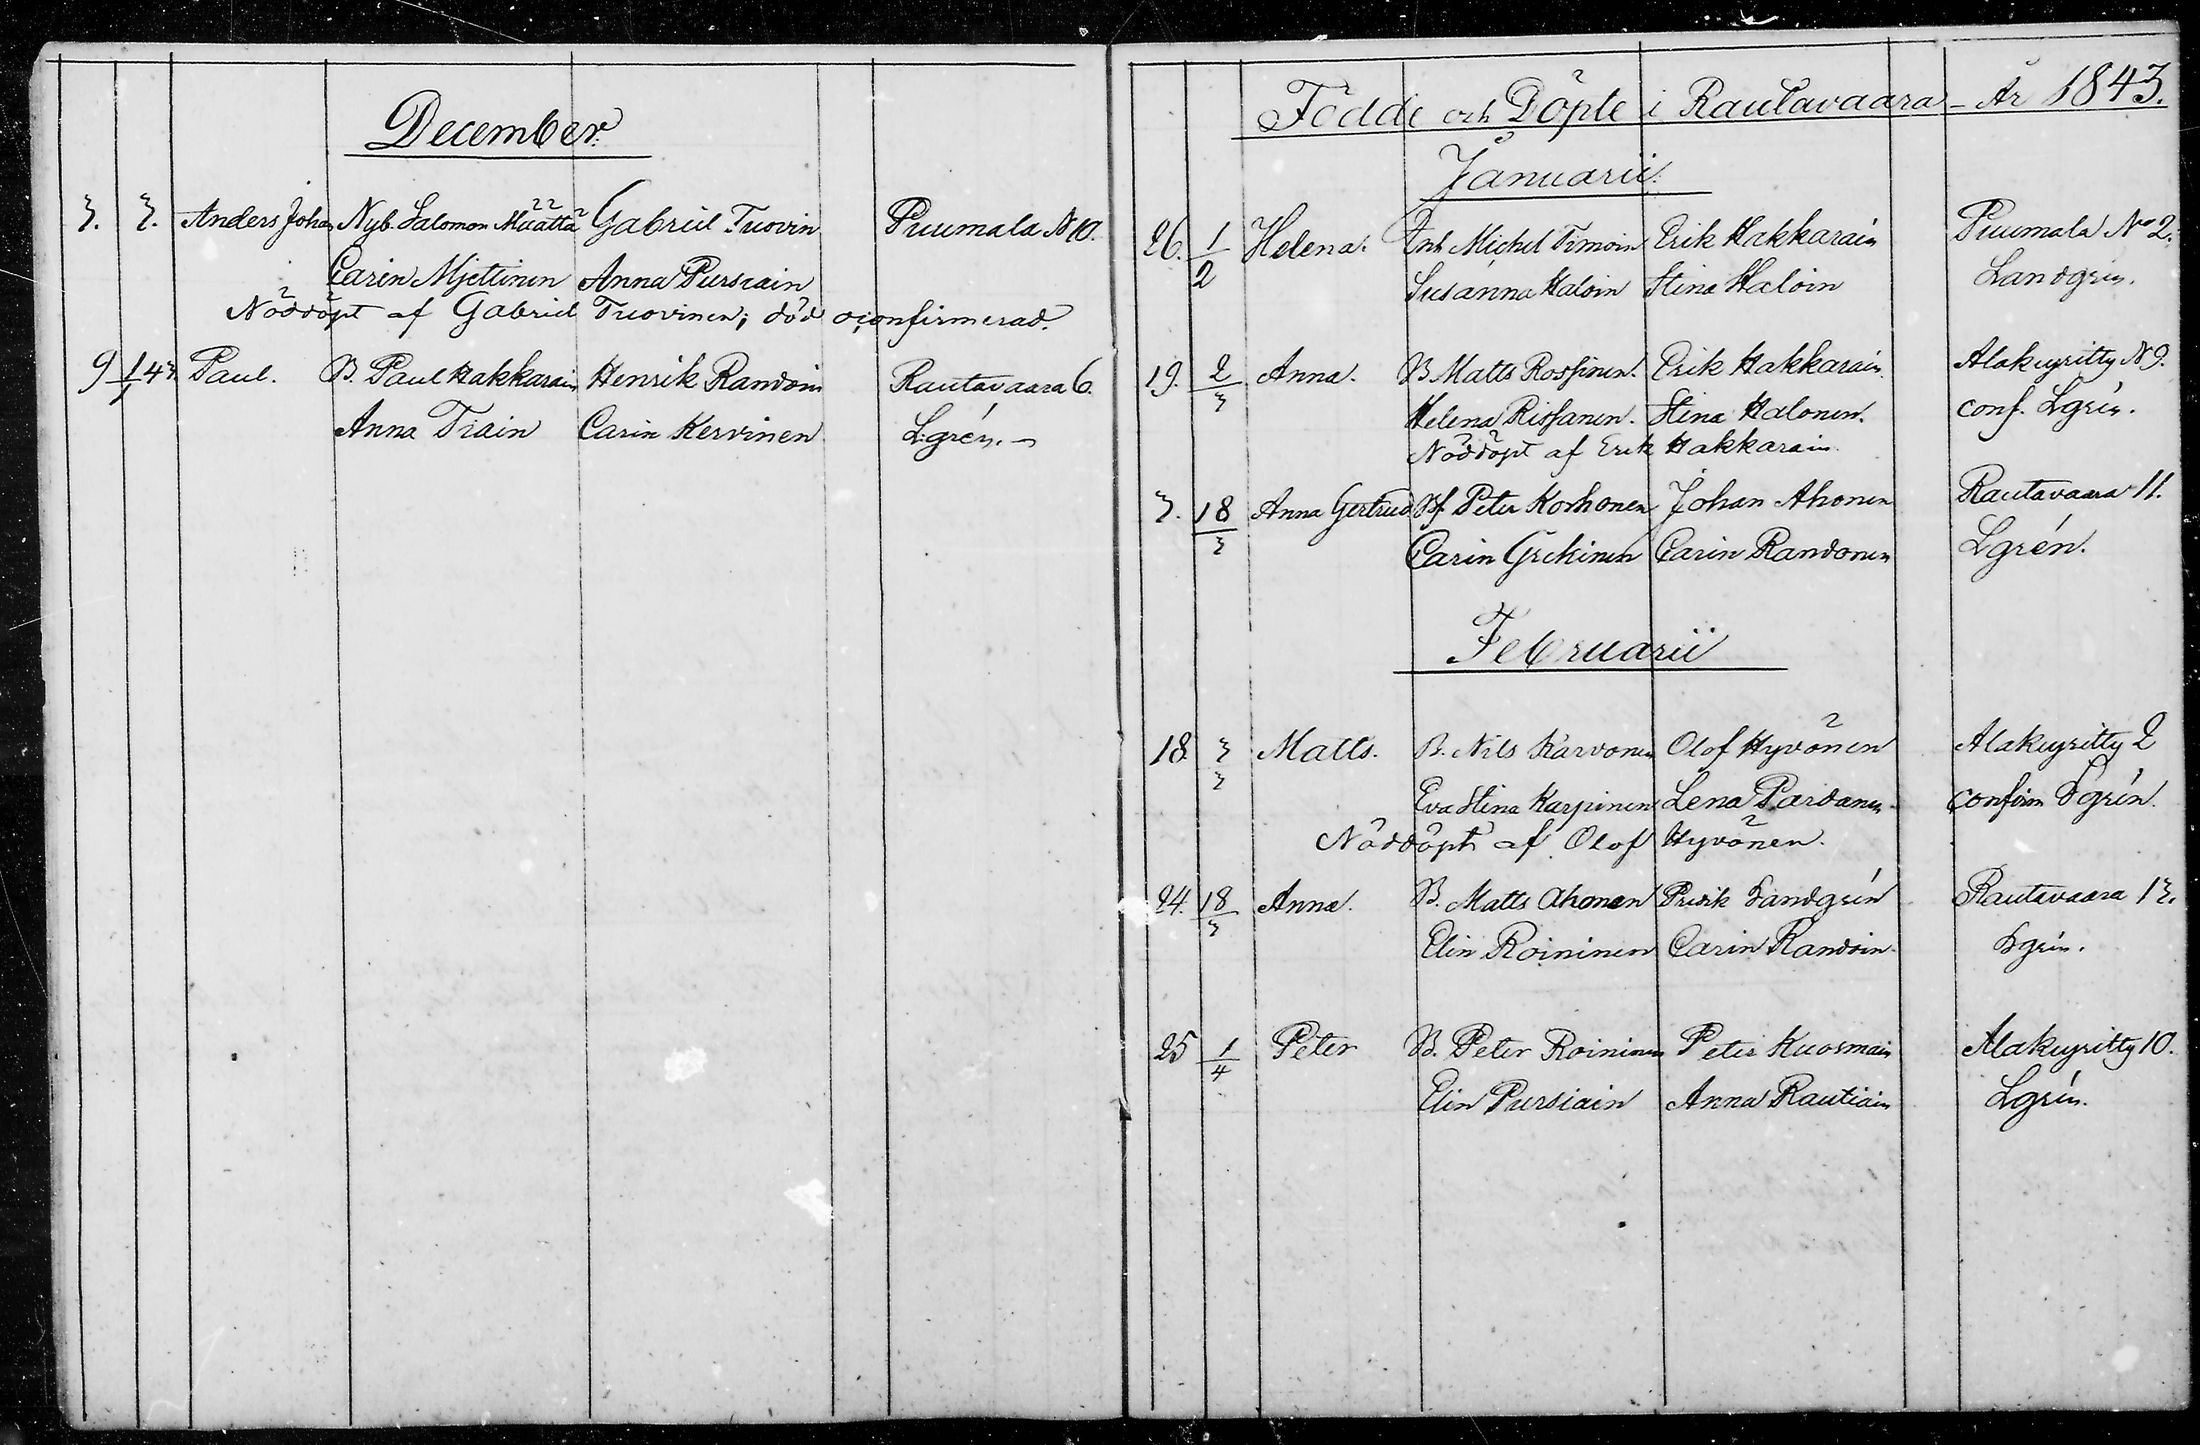 December.
3. 3. Anders Johan Nyb. Salomon Määttä Gabriel Tuovin Puumala N 10.
Carin Mjettinen Anna Pursiain
Nöddöpt af Gabriel Tuovinen; död oconfirmerad.
9 1/1 43 Paul. B. Paul Hakkarain Henrik Randoin Rautavaara 6.
Anna Train Carin Kervinen Lgrén.
Födde och Döpte i Rautavaara – År 1843.
Januarii.
26. 1/2 Helena. Inh Michel Timoin Erik Hakkarain Puumala No 2.
Susanna Haloin Stina Haloin Landgrén.
19. 2/3 Anna. B Matts Rossinen. Erik Hakkarain. Alakeyritty N 9.
Helena Rissanen. Stina Halonen. conf. Lgrén.
Nöddöpt af Erik Hakkarain.
3. 18/3 Anna Gertrud Peter Korhonen Johan Ahonen Rautavaara 11.
Carin Grekinen Carin Randonen Lgrén.
Februarii
18. 3/3 Matts. B. Nils Karvonen Olof Hyvönen Alakeyritty 2
Eva Stina Karpinen Lena Pardanen confirm Lgrén.
Nöddöpt af Olof Hyvönen.
24. 18/3 Anna. B. Matts Ahonen Predik Landgrén Rautavaara 13.
Elin Roininen Carin Randoin Lgrén.
25 1/4 Peter B. Peter Roininen Peter Kuosmain Alakeyritty 10.
Elin Pursiain Anna Rautiain Lgrén.